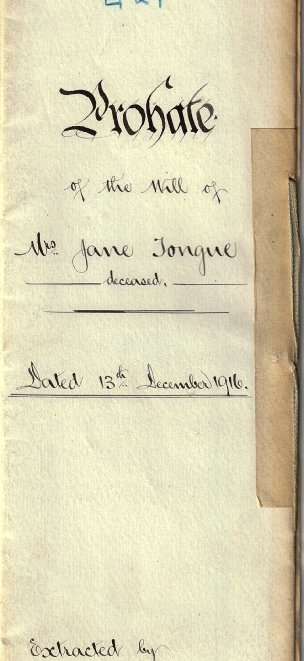 Probate
of the Will of
Mrs. Jane Tongue
deceased.
Dated 13th December 1916.
Extracted by